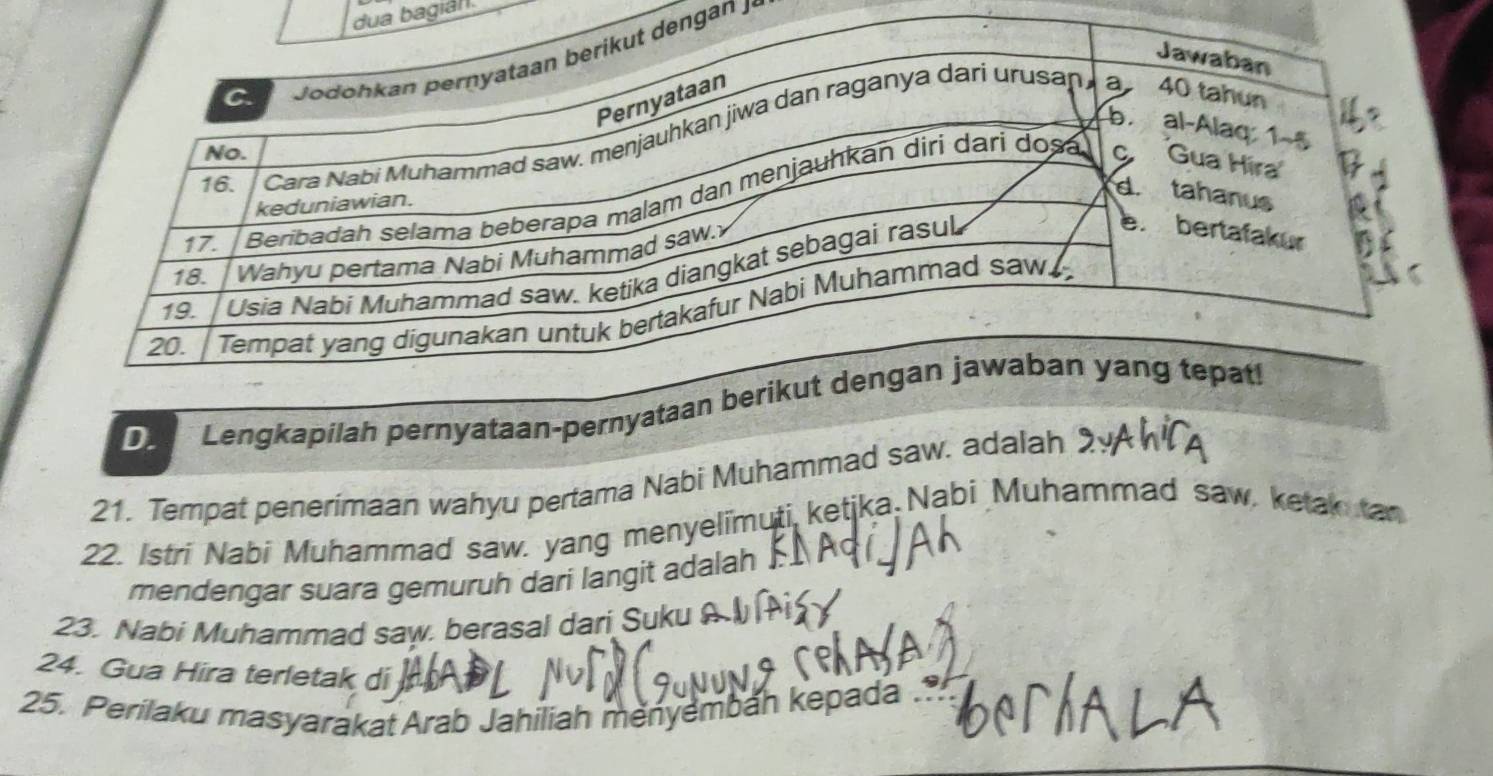 dua bagian.
C. Jodohkan pernyataan berikut dengan
No. Pernyataan Jawaban
16. Cara Nabi Muhammad saw. menjauhkan jiwa dan raganya dari urusan a. 40 tahun
keduniawian. b. al-Alaq: 1-5
17. Beribadah selama beberapa malam dan menjauhkan diri dari dosa c. Gua Hira'
18. Wahyu pertama Nabi Muhammad saw. d. tahanus
19. Usia Nabi Muhammad saw. ketika diangkat sebagai rasul e. bertafakur
20. Tempat yang digunakan untuk bertakafur Nabi Muhammad saw.
D. Lengkapilah pernyataan-pernyataan berikut dengan jawaban yang tepat!
21. Tempat penerimaan wahyu pertama Nabi Muhammad saw. adalah guAhirA
22. Istri Nabi Muhammad saw. yang menyelimuti ketika Nabi Muhammad saw. ketakutan
mendengar suara gemuruh dari langit adalah KhAdiJAh
23. Nabi Muhammad saw. berasal dari Suku
24. Gua Hira terletak di JABAL Nur (gUNUNg
25. Perilaku masyarakat Arab Jahiliah menyembah kepada .... berhALA